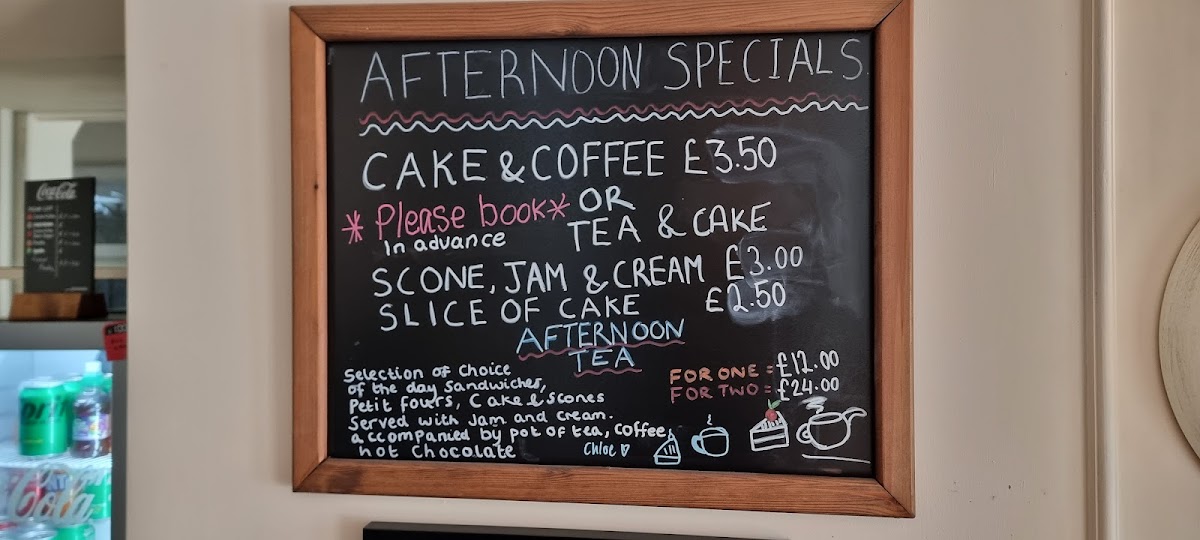 AFTERNOON SPECIALS
CAKE & COFFEE £3.50
*Please book* OR
In advance TEA & CAKE
SCONE, JAM & CREAM £3.00
SLICE OF CAKE £2.50
AFTERNOON
TEA
Selection of Choice
of the day Sandwiches,
Petit fours, Cake & Scones
Served with Jam and cream.
accompanied by pot of tea, coffee
hot Chocolate
Chloe ♡
FOR ONE = £12.00
FOR TWO = £24.00
Coca-Cola
Cola